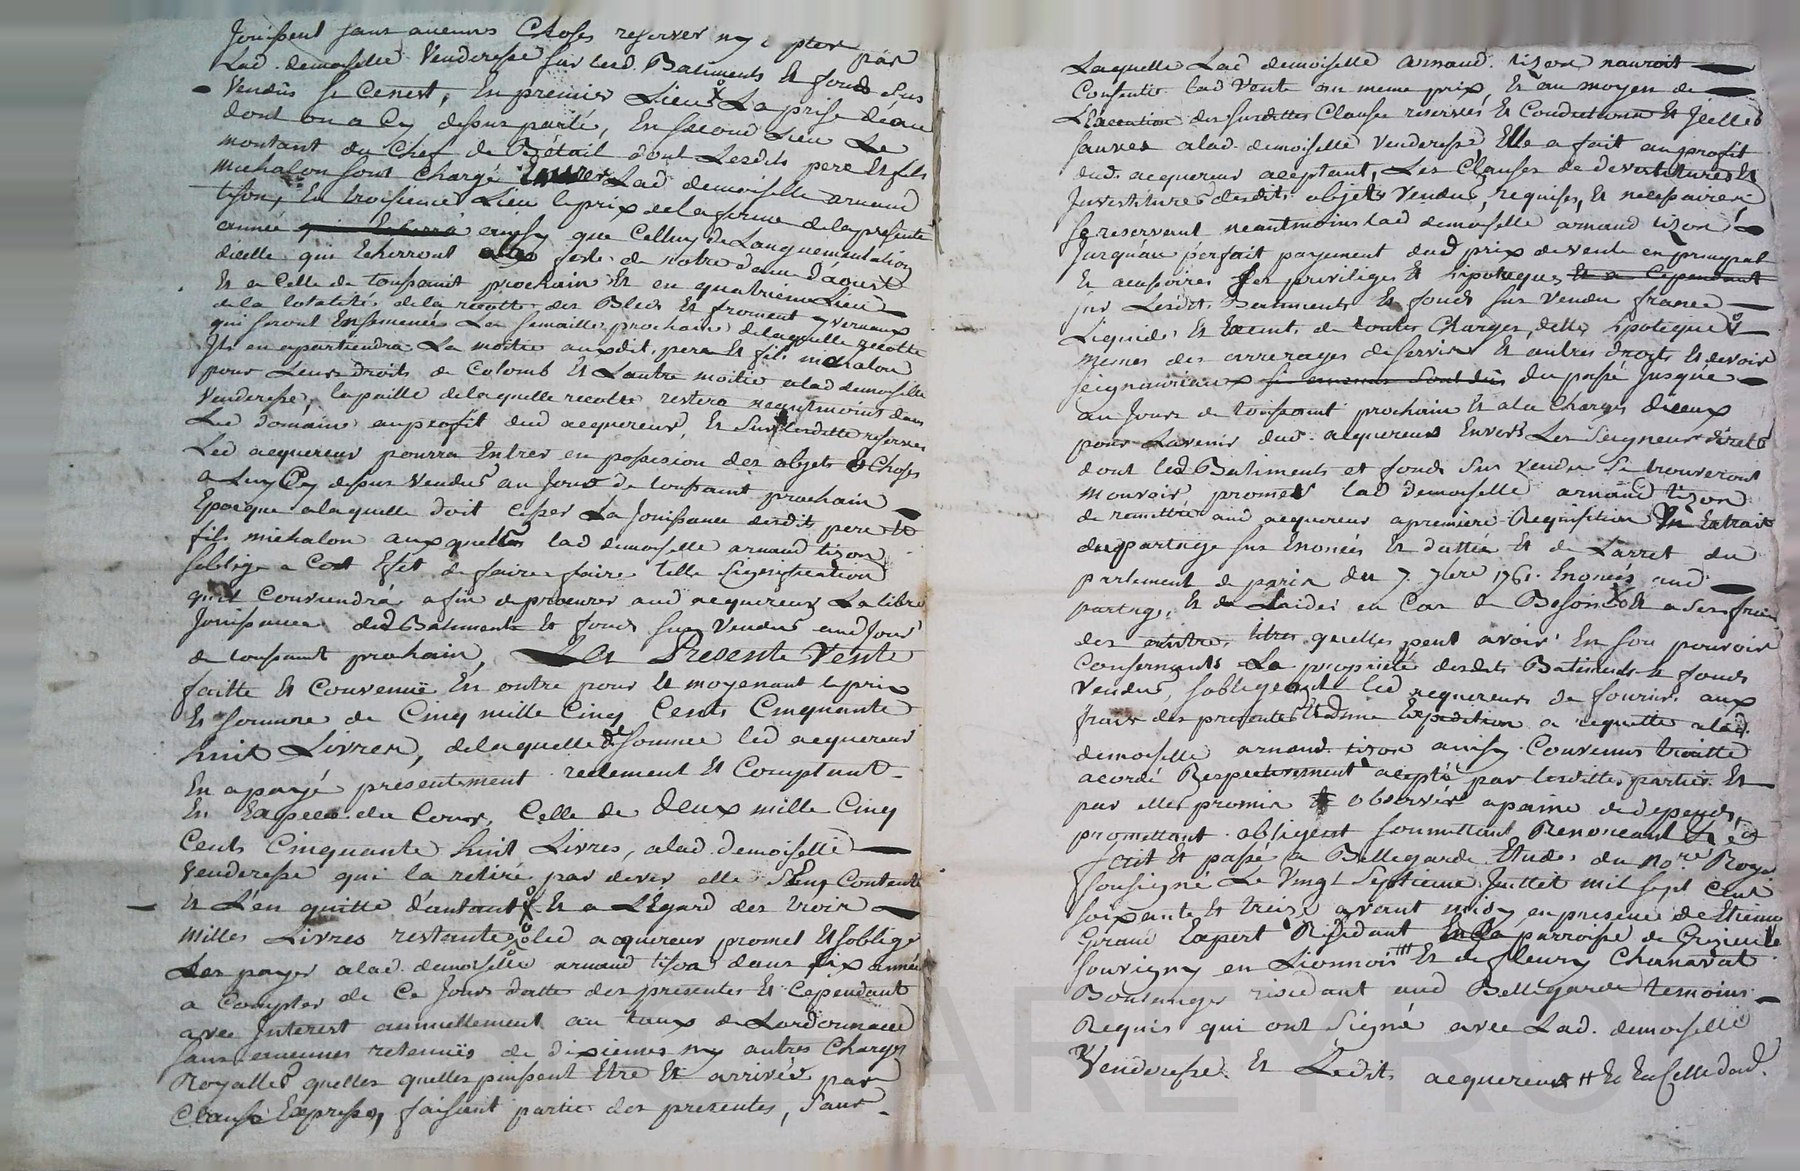 Jouissent sans aucunes Choses reserver ny par
Lad. demoiselle Venderesse sur lesd. Batiments Et fonds sus
Vendus se Cenest, En premier Lieu La prise deau
dont on a Cy dessus parlé, En second Lieu Le
montant du Chef de Bétail dont Lesdits pere Et fils
michalon sont Chargé Lad demoiselle arnaud
tison, En troisieme Lieu le prix de la ferme de la presente
année ainsy que Celluy de Laugmentation
dicelle qui Echerront feste de notre dame daoust
Et a Celle de toussaint prochain Et en quatrieme Lieu
de la totalité de la recolte des Bleds Et froment yvernaux
qui seront Ensemencés La semaille prochaine de laquelle recolte
Il en apartiendra La moitié auxdit. pere Et fils michalon
pour Leurs droits de Colomb Et Lautre moitié alad demoiselle
Venderesse, la paille de laquelle recolte restera neantmoins dans
Led domaine au profit dud acquereur, Et sur lesdittes reserves
Led acquereur pourra Entrer en possession des objets Et Choses
a Luy Cy dessus Vendus au Jour de toussaint prochain
Epoque alaquelle doit cesser La Jouissance desdits pere Et
fils michalon aux quels lad demoiselle arnaud tison
soblige a Cet Efet de faire faire telle signification
quil Conviendra afin de procurer aud acquereur La libre
Jouissance desd Batiments Et fonds sus Vendus aud Jour
de toussaint prochain, La Presente Vente
faitte Et Convenuë En outre pour Et moyenant le prix
Et somme de Cinq mille Cinq Cents Cinquante
huit Livres, de laquelle somme led acquereur
En a payé presentement reelement Et Comptant
En Especes du Cours, Celle de deux mille Cinq
Cents Cinquante huit Livres, alad. demoiselle
Venderesse qui la retiré par devers elle sen Contente
Et Len quitte dautant Et a LEgard des trois
milles Livres restante led acquereur promet Et soblige
Les payer alad. demoiselle arnaud tison dans six années
a Compter de Ce Jour datte des presentes Et Cependant
avec Interest annuellement au taux de Lordonnance
sans aucunes retenuës de dixiemes ny autres Charges
Royalles quelles quelles puissent Etre Et arrivée par
Clause Expresse, faisant partie des presentes, sans
Laquelle Lad demoiselle arnaud tison nauroit
Consentie lad Vente au meme prix, Et au moyen de
LExecution des susdittes Clauses reserves Et Conditions Et Icelles
sauves alad. demoiselle Venderesse Elle a fait au profit
dud. acquereur aceptant, Les Clauses de devestitures Et
Investitures desdits objets Vendus, requises, Et necessaires
se reservant neantmoins lad demoiselle arnaud tison
Jusquau perfait payement dud prix de vente en principal
Et acessoires ses privileges Et hipoteques Et a Cependant
sur Lesdits Batiments Et fonds sus Vendu franc
Liquide Et Exempt de toutes Charges dette hipoteque
memes des arrerages de servis Et autres droits Et devoir
seigneuriaux du passé Jusque
au Jour de toussaint prochain Et ala Charge diceux
pour Lavenir dud. acquereur Envers Les Seigneurs directs
dont lesd Batiments et fonds sus vendu se trouveront
mouvoir, promet lad demoiselle arnaud tison
de remettre aud acquereur a premiere Requisition Un Extrait
du partage sus Enoncés Et dattée Et de Larret du
parlement de paris du 7. 7bre 1761. Enoncés aud
partage, Et de Laider en Cas de Besoin Et a ses frais
des titres quelles peut avoir En son pouvoir
Consernants La propriété desdits Batiments Et fonds
Vendus, sobligeant led acquereurs de fournir aux
frais des presentes Expedition a requette alad.
demoiselle arnaud tison ainsy Convenus traitté
acordé Respectivement acepté par lesdittes parties Et
par elles promis observer apaine de depends,
promettant obligent soumettant Renonceant
fait Et passé a Bellegarde Etude du Nore Royal
soussigné Le Vingt Septieme Juillet mil sept Cent
soixante Et treize avant midy en presence de Etienne
Giraud Expert Residant En la parroisse de
souvigny en Lionnois Et de fleury Chanavat
Boulanger residant aud Bellegarde temoins
Requis qui ont Signé avec Lad. demoiselle
Venderesse. Et Ledit. acquereur